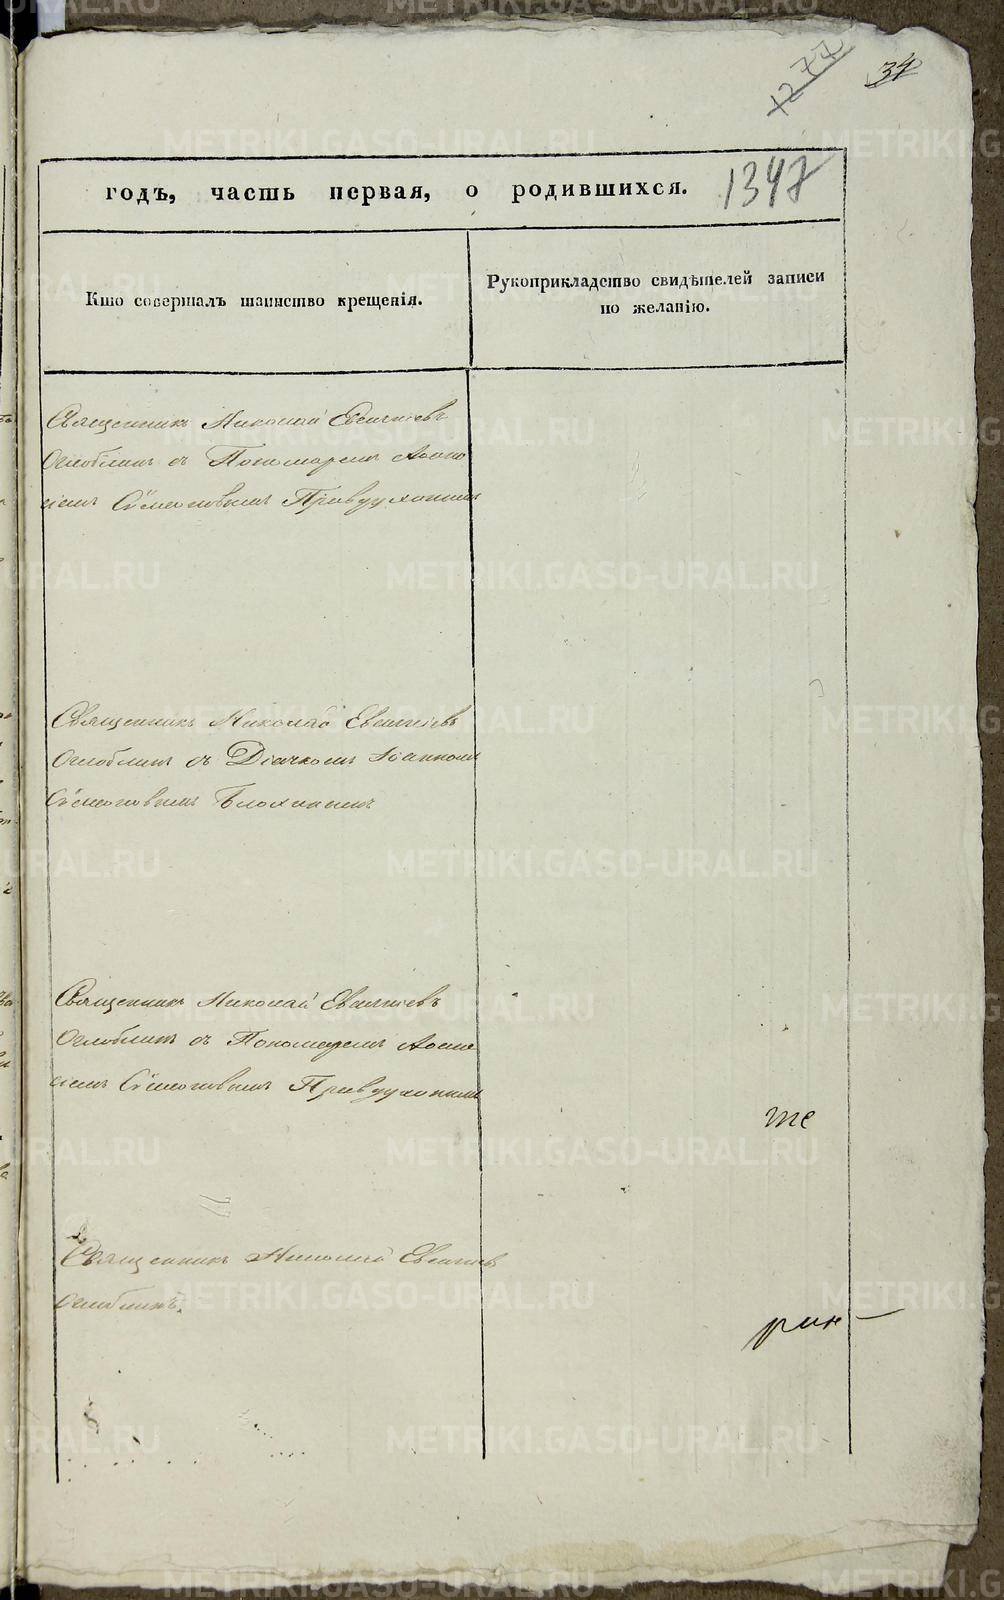 1277
34
годъ, часть первая, о родившихся.
1347
Кто совершалъ таинство крещенія.
Рукоприкладство свидѣтелей записи
по желанію.
Священникъ Николай Евсигніевъ
Оглоблинъ съ Пономаремъ
Сѵмеоновымъ
Священникъ Николай Евсигніевъ
Оглоблинъ съ Дьячкомъ Іоанномъ
Сѵмеоновымъ Блохинымъ
Священникъ Николай Евсигніевъ
Оглоблинъ съ Пономаремъ
Сѵмеоновымъ
те
Священникъ Николай Евсигніев
Оглоблинъ.
рин
METRIKI.GASO-URAL.RU